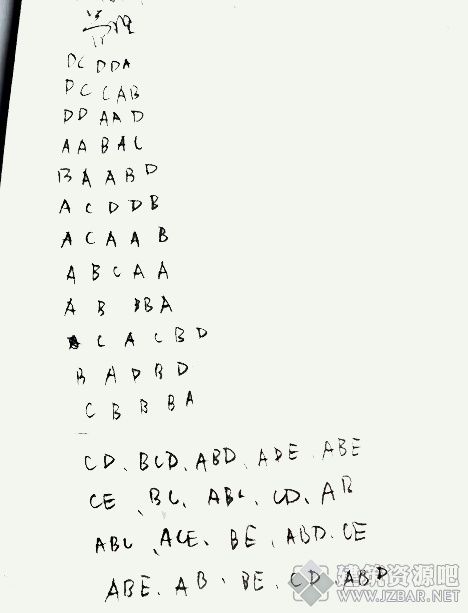 管理
DC DDA
DC CAB
DD AAD
AABAC
BAABD
ACDDB
ACAAB
ABCAA
AB BBA
CACBD
BADBD
CBBBA
CD、BCD、ABD、ADE、ABE
CE、BC、ABC、CD、AB
ABC、ACE、BE、ABD、CE
ABE、AB、BE、CD、ABD
建筑资源吧
WWW.JZBAR.NET